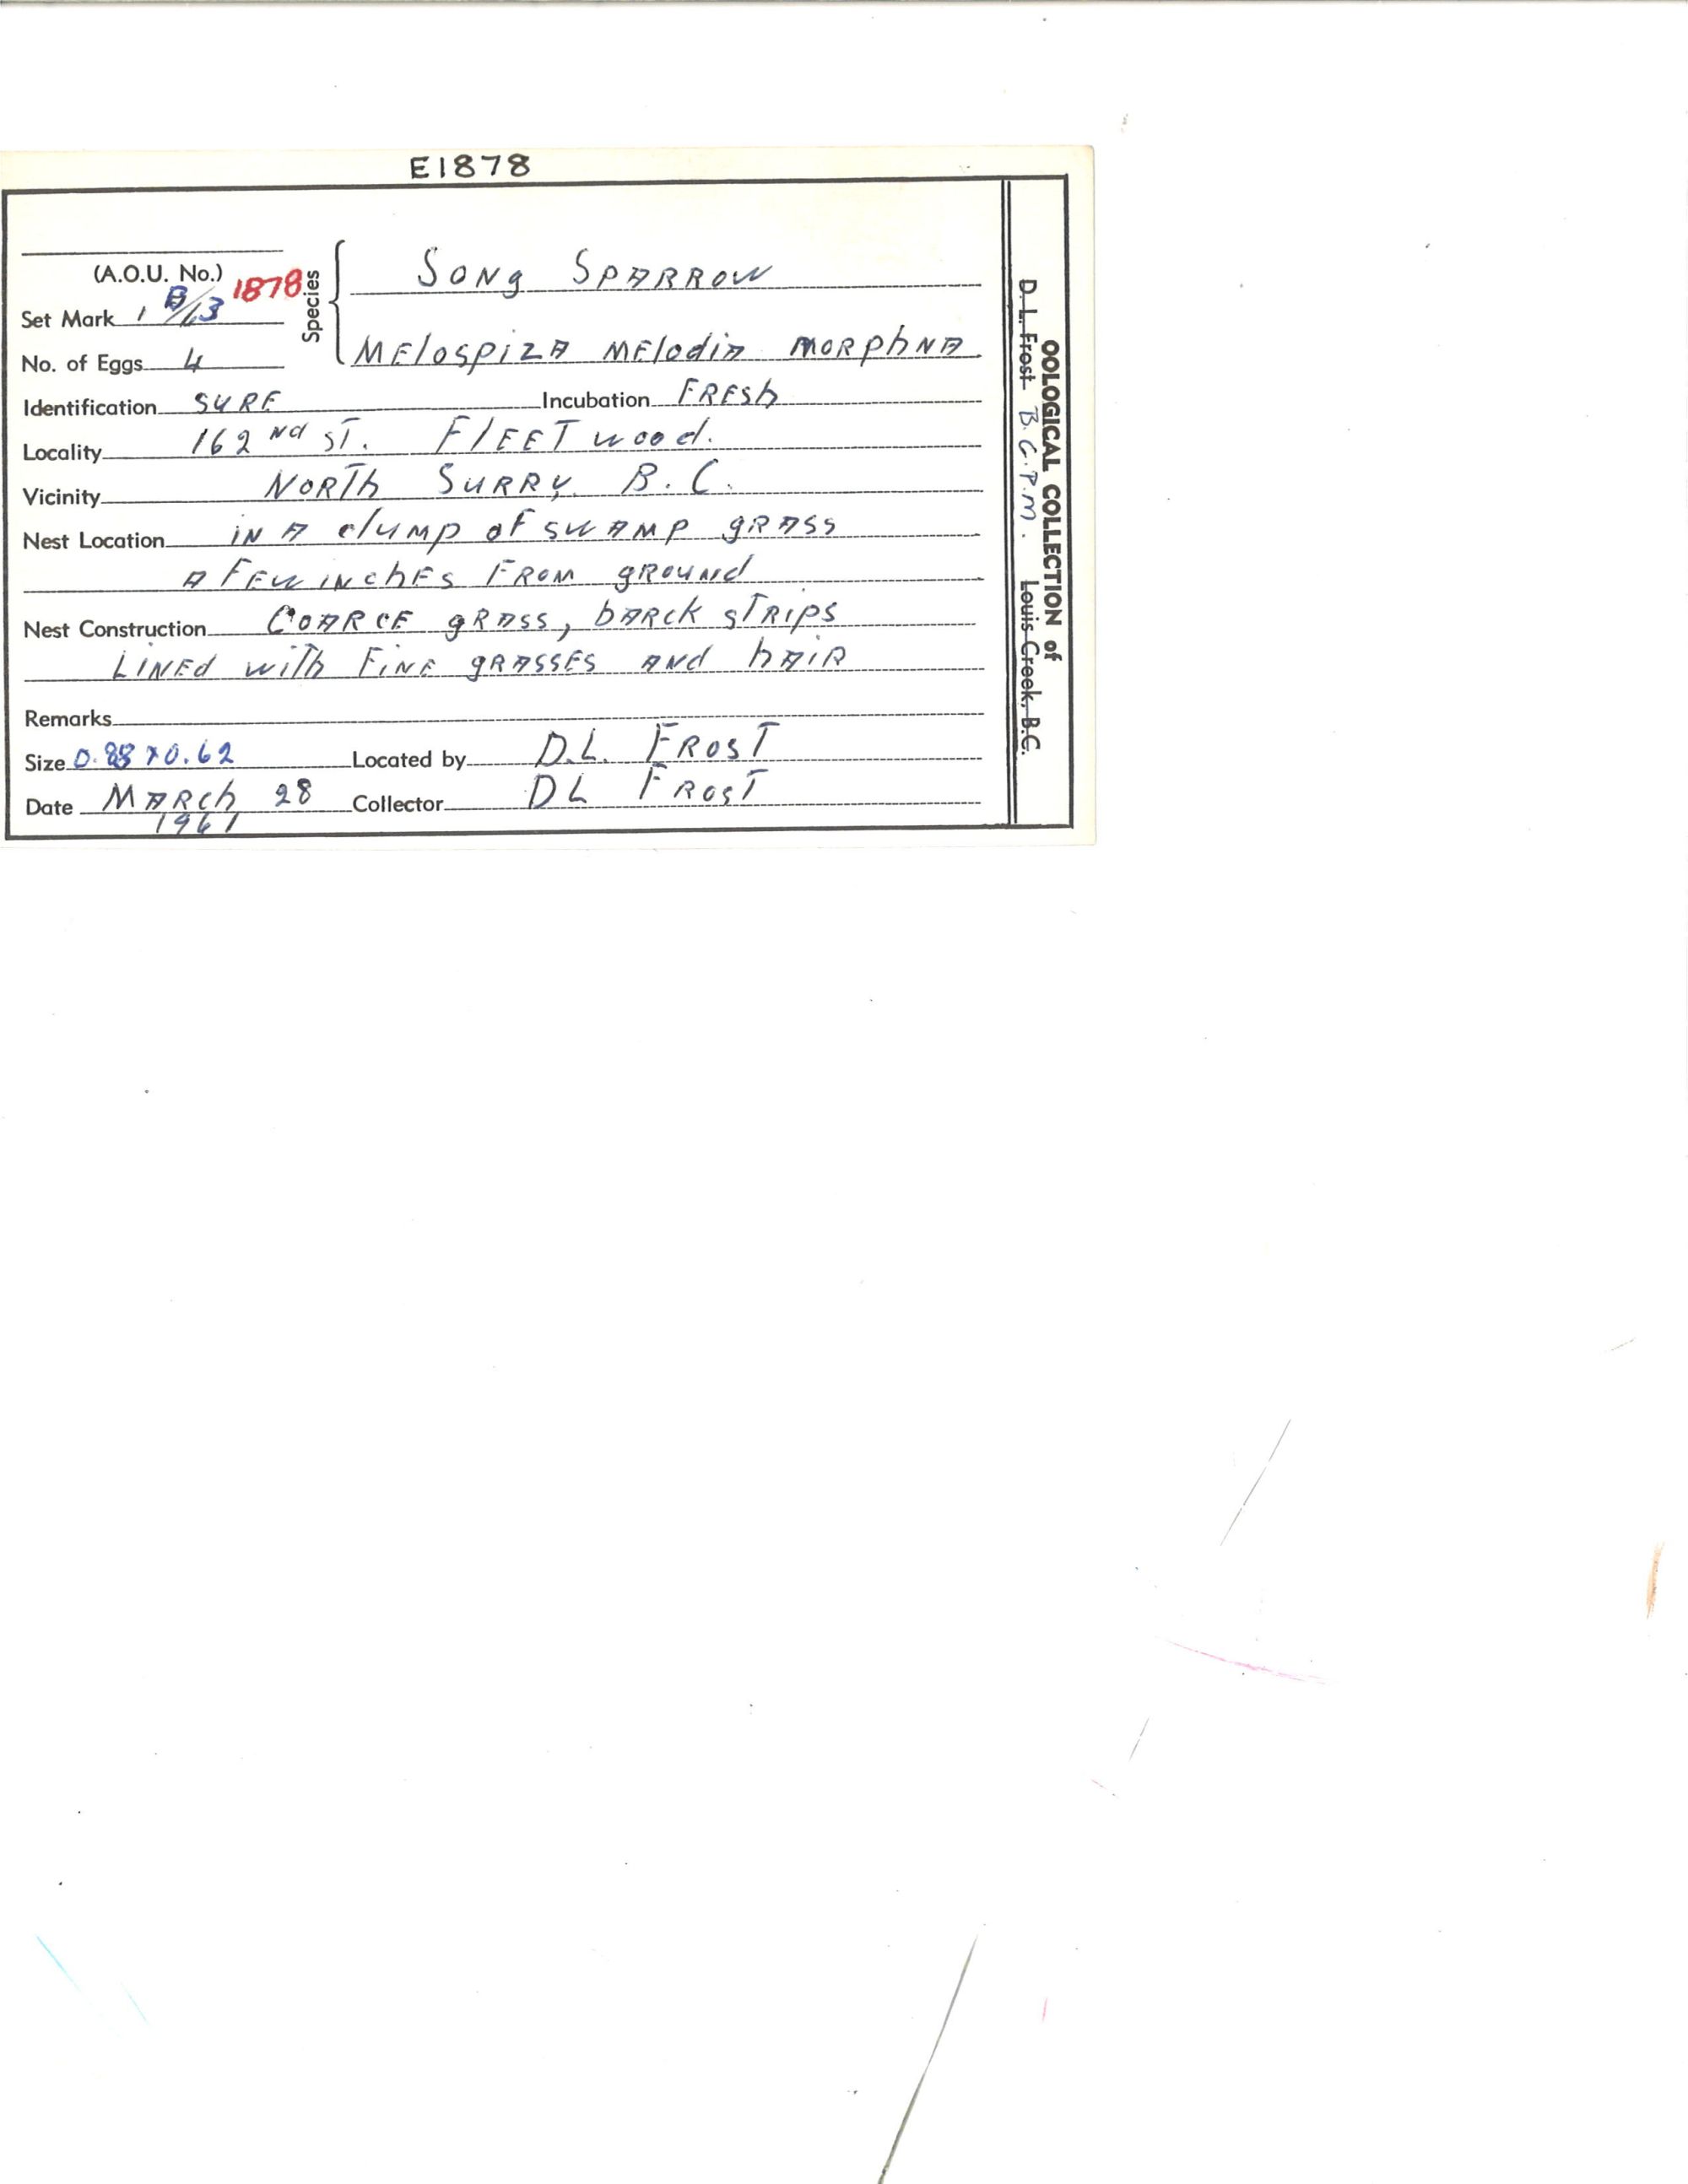 E1878
(A.O.U. No.) 1878
Species { SONg SPARROW
Set Mark 1 B/13
MElOSpiZA MElOdiA MORPhNA
No. of Eggs 4
Identification SURE Incubation FRESh
Locality 162 Nd ST. FlEETwood.
Vicinity NORTh SURRY B.C.
Nest Location iN A clUMp oF SWAMP gRASS
A FEW iNchES FROM gROUNd
Nest Construction COARCE gRASS, bARCk STRipS
LiNEd wiTh FiNE gRASSES ANd hAiR
Remarks
Size 0.88 x 0.62 Located by D.L. FROST
Date MARch 28 Collector DL FROST
1961
OOLOGICAL COLLECTION of
D. L. Frost B.C.P.M. Louis Creek, B.C.